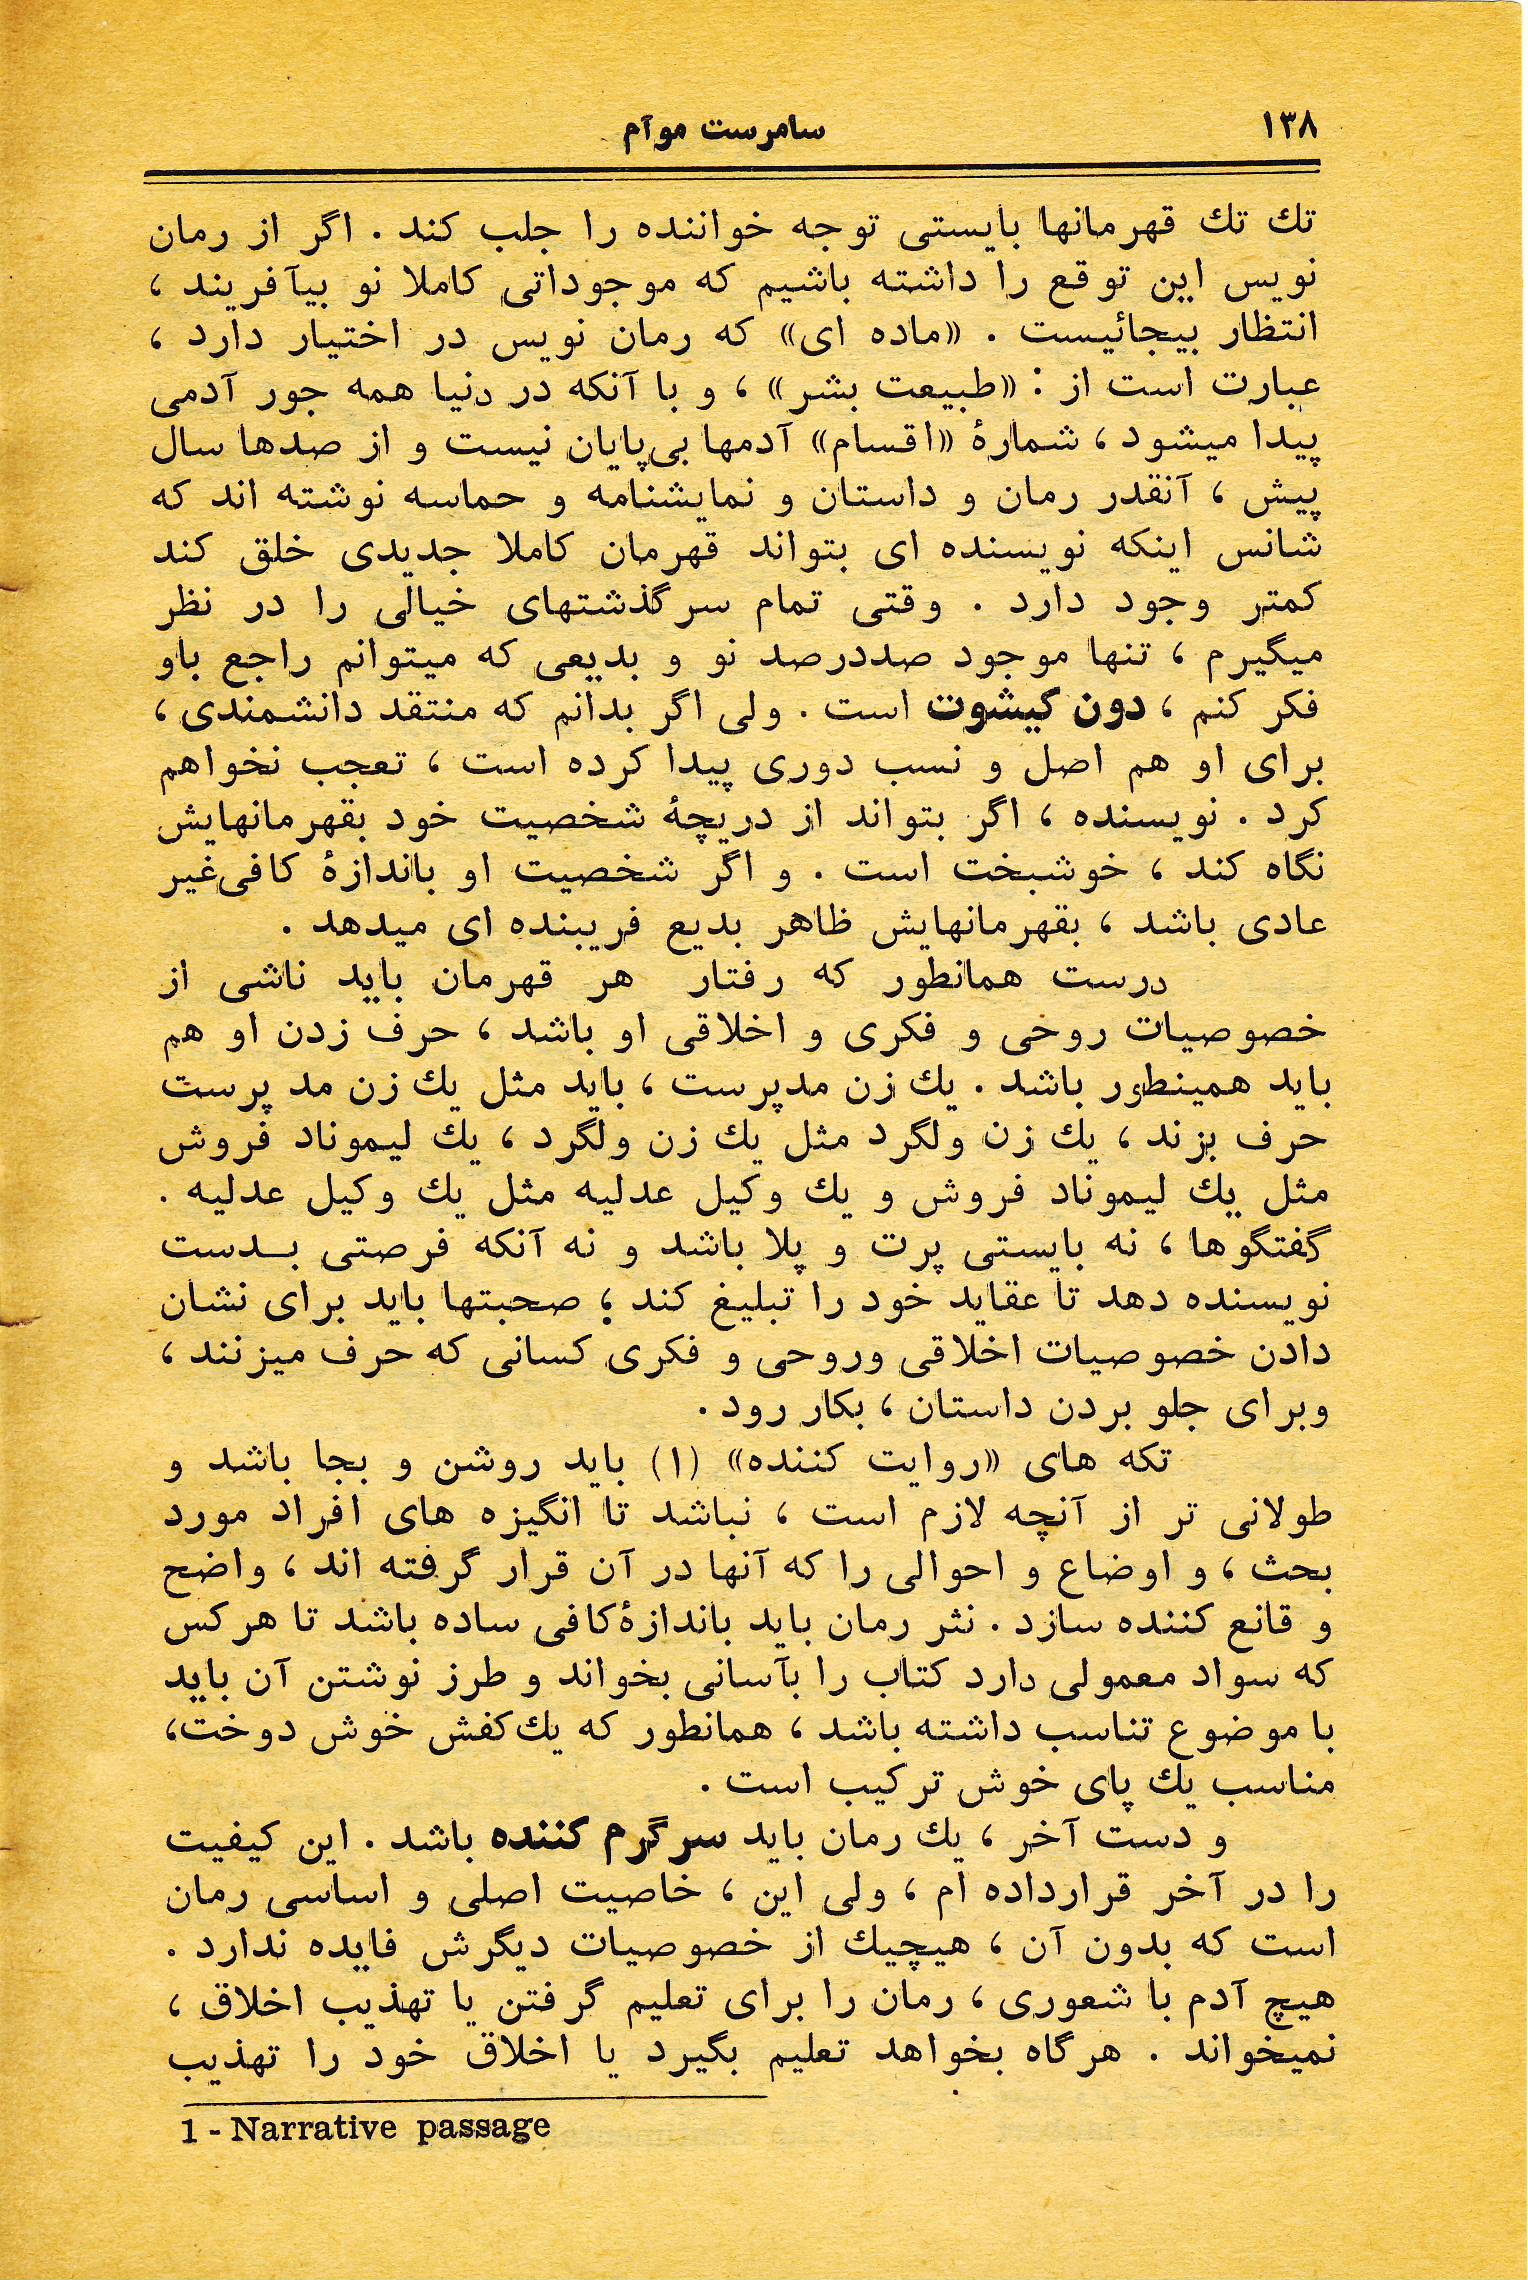 ۱۳۸
سامرست موآم
تك تك قهرمانها بایستی توجه خواننده را جلب کند . اگر از رمان
نویس این توقع را داشته باشیم که موجوداتی کاملا نو بیآفریند ،
انتظار بیجائیست . «ماده ای» که رمان نویس در اختیار دارد ،
عبارت است از : «طبیعت بشر» ، و با آنکه در دنیا همه جور آدمی
پیدا میشود ، شمارهٔ «اقسام» آدمها بی‌پایان نیست و از صدها سال
پیش ، آنقدر رمان و داستان و نمایشنامه و حماسه نوشته اند که
شانس اینکه نویسنده ای بتواند قهرمان کاملا جدیدی خلق کند
کمتر وجود دارد . وقتی تمام سرگذشتهای خیالی را در نظر
میگیرم ، تنها موجود صددرصد نو و بدیعی که میتوانم راجع باو
فکر کنم ، دون کیشوت است . ولی اگر بدانم که منتقد دانشمندی ،
برای او هم اصل و نسب دوری پیدا کرده است ، تعجب نخواهم
کرد . نویسنده ، اگر بتواند از دریچهٔ شخصیت خود بقهرمانهایش
نگاه کند ، خوشبخت است . و اگر شخصیت او باندازهٔ کافی‌غیر
عادی باشد ، بقهرمانهایش ظاهر بدیع فریبنده ای میدهد .
درست همانطور که رفتار هر قهرمان باید ناشی از
خصوصیات روحی و فکری و اخلاقی او باشد ، حرف زدن او هم
باید همینطور باشد . یك زن مدپرست ، باید مثل یك زن مد پرست
حرف بزند ، یك زن ولگرد مثل یك زن ولگرد ، یك لیموناد فروش
مثل یك لیموناد فروش و یك وکیل عدلیه مثل یك وکیل عدلیه .
گفتگوها ، نه بایستی پرت و پلا باشد و نه آنکه فرصتی بـدست
نویسنده دهد تا عقاید خود را تبلیغ کند ؛ صحبتها باید برای نشان
دادن خصوصیات اخلاقی وروحی و فکری کسانی که حرف میزنند ،
وبرای جلو بردن داستان ، بکار رود .
تکه های «روایت کننده» (۱) باید روشن و بجا باشد و
طولانی تر از آنچه لازم است ، نباشد تا انگیزه های افراد مورد
بحث ، و اوضاع و احوالی را که آنها در آن قرار گرفته اند ، واضح
و قانع کننده سازد . نثر رمان باید باندازهٔ‌کافی ساده باشد تا هرکس
که سواد معمولی دارد کتاب را بآسانی بخواند و طرز نوشتن آن باید
با موضوع تناسب داشته باشد ، همانطور که یك‌کفش خوش دوخت،
مناسب یك پای خوش ترکیب است .
و دست آخر ، یك رمان باید سرگرم کننده باشد . این کیفیت
را در آخر قرارداده ام ، ولی این ، خاصیت اصلی و اساسی رمان
است که بدون آن ، هیچیك از خصوصیات دیگرش فایده ندارد .
هیچ آدم با شعوری ، رمان را برای تعلیم گرفتن یا تهذیب اخلاق ،
نمیخواند . هرگاه بخواهد تعلیم بگیرد یا اخلاق خود را تهذیب
1 - Narrative passage